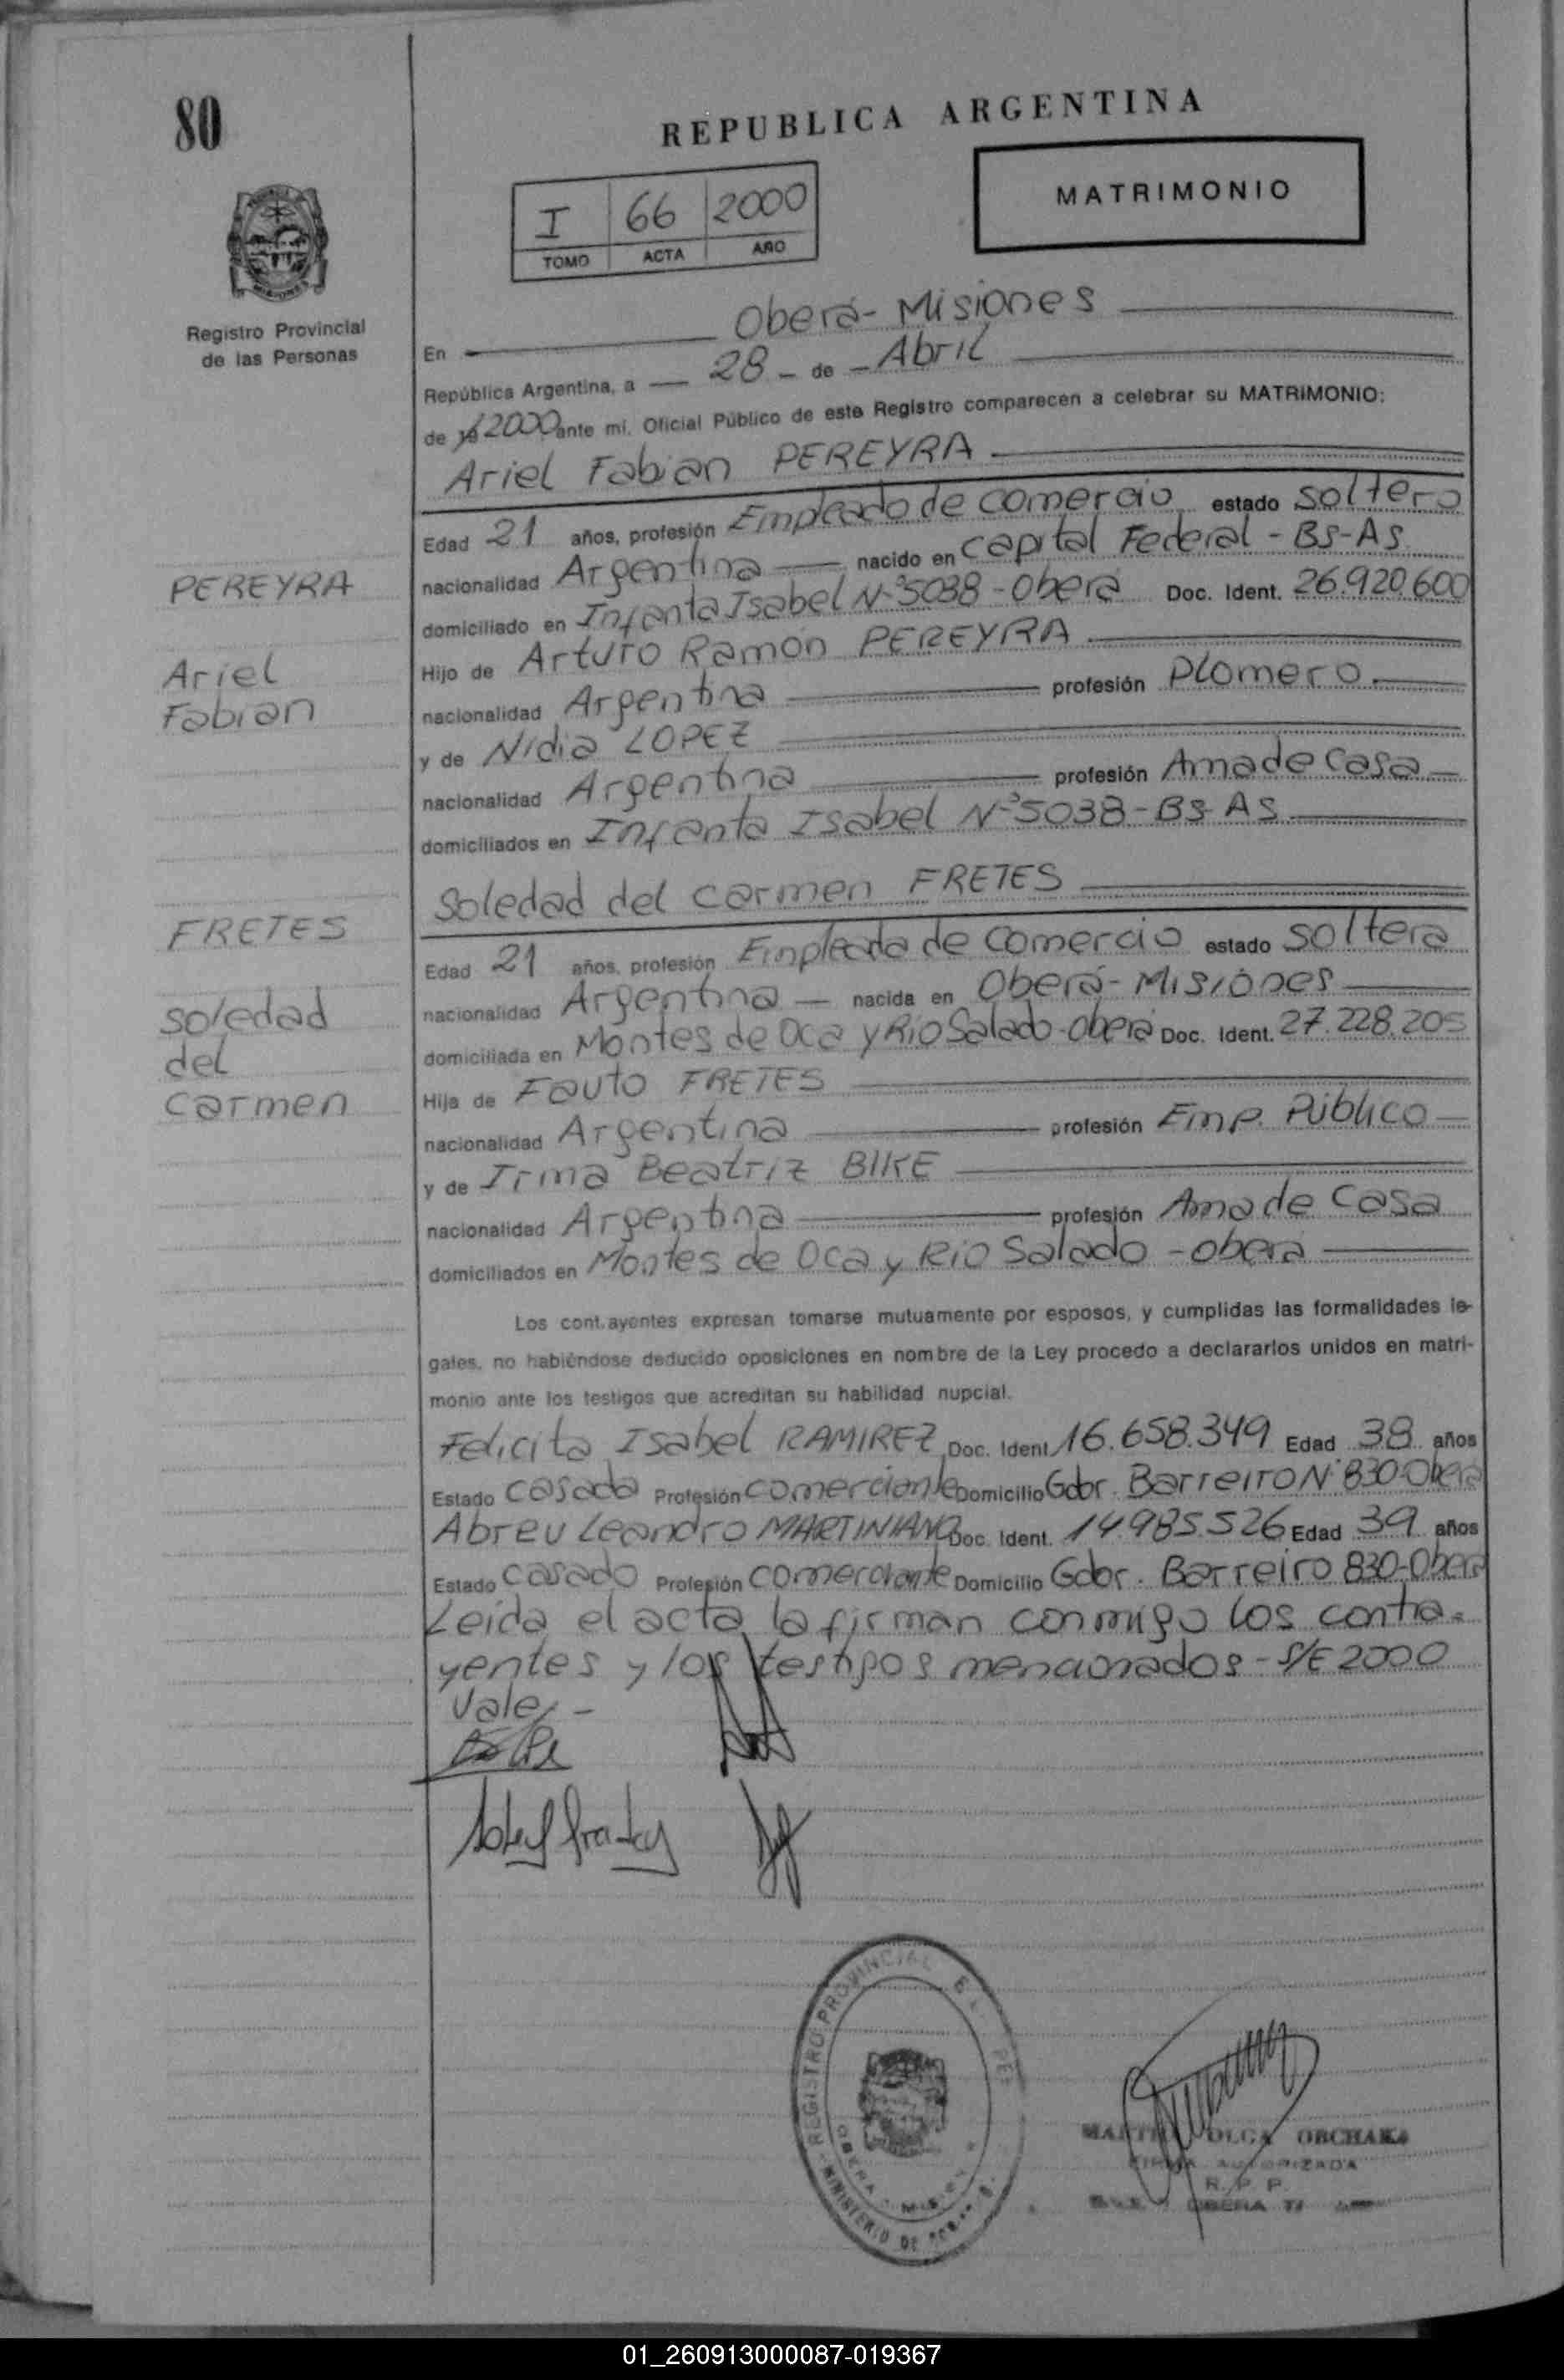 80
REPUBLICA ARGENTINA
I 66 2000
TOMO ACTA AÑO
MATRIMONIO
Registro Provincial
de las Personas
En Oberá - Misiones
República Argentina, a 28 - de - Abril
de 19 2000 ante mi, Oficial Público de este Registro comparecen a celebrar su MATRIMONIO:
Ariel Fabian PEREYRA
Edad 21 años, profesión Empleado de comercio estado soltero
nacionalidad Argentina nacido en Capital Federal - Bs-As
PEREYRA
domiciliado en Infanta Isabel Nº 5038 - Oberá Doc. Ident. 26.920.600
Hijo de Arturo Ramón PEREYRA
Ariel
Fabian
nacionalidad Argentina profesión Plomero
y de Nidia LOPEZ
nacionalidad Argentina profesión Ama de Casa
domiciliados en Infanta Isabel Nº 5038 - Bs As
Soledad del Carmen FRETES
FRETES
Edad 21 años, profesión Empleada de Comercio estado soltera
nacionalidad Argentina nacida en Oberá - Misiónes
Soledad
del
Carmen
domiciliada en Montes de Oca y Río Salado - Oberá Doc. Ident. 27.228.205
Hija de Fauto FRETES
nacionalidad Argentina profesión Emp. Público
y de Irma Beatriz BIKE
nacionalidad Argentina profesión Ama de Casa
domiciliados en Montes de Oca y Río Salado - Oberá
Los cont.ayentes expresan tomarse mutuamente por esposos, y cumplidas las formalidades le-
gales, no habiéndose deducido oposiciones en nombre de la Ley procedo a declararlos unidos en matri-
monio ante los testigos que acreditan su habilidad nupcial.
Felicita Isabel RAMIREZ Doc. Ident 16.658.349 Edad 38 años
Estado Casada Profesión comerciante Domicilio Gdor. Barreiro Nº 830-Oberá
Abreu Leandro MARTINIANO Doc. Ident. 14.985.526 Edad 39 años
Estado Casado Profesión comerciante Domicilio Gdor. Barreiro 830-Oberá
Leida el acta la firman conmigo los contra-
yentes y los testigos mencionados - S/E 2000
Vale. -
REGISTRO PROVINCIAL
OBERA - MIS
MINISTERIO DE
OLGA ORCHAKA
AUTORIZADA
R. P. P.
OBERA
01_260913000087-019367